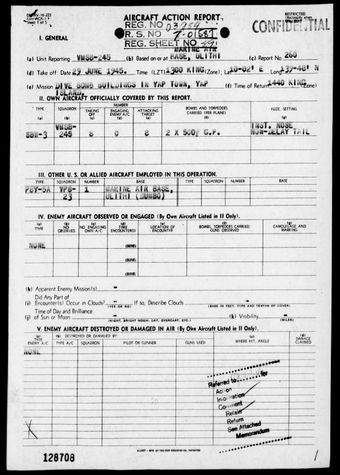 AIRCRAFT ACTION REPORT
RESTRICTED
CONFIDENTIAL
REG. NO
R. S. NO
REG. SHEET NO
I. GENERAL
MARINE AIR
(a) Unit Reporting VMSB-245 (b) Based on or at BASE, ULITHI (c) Report No 260
(d) Take off: Date 29 JUNE 1945, Time (LZT) 1300 KING (Zone), Lat. 10-02' Long. 139-48'
(e) Mission DIVE BOMB BUILDINGS IN YAP TOWN, YAP ISLAND. (f) Time of Return 1440 KING (Zone)
II. OWN AIRCRAFT OFFICIALLY COVERED BY THIS REPORT.
TYPE
SQUADRON
NUMBER
TAKING OFF
ENGAGING ENEMY A/C
ATTACKING TARGET
BOMBS AND TORPEDOES CARRIED (PER PLANE)
FUZE, SETTING
VMSB-
245 8 0 8 2 X 500# G.P.
INST. NOSE
NON-DELAY TAIL
III. OTHER U. S. OR ALLIED AIRCRAFT EMPLOYED IN THIS OPERATION.
TYPE SQUADRON NUMBER BASE TYPE SQUADRON NUMBER BASE
PBY-5A VPB-23 1 MARINE AIR BASE, ULITHI (DUMBO)
IV. ENEMY AIRCRAFT OBSERVED OR ENGAGED (By Own Aircraft Listed in II Only).
TYPE
NO. OBSERVED
NO. ENGAGING OWN A/C
TIME ENCOUNTERED
LOCATION OF ENCOUNTER
BOMBS, TORPEDOES CARRIED; GUNS OBSERVED
CAMOUFLAGE AND MARKING
NONE
(ZONE)
(ZONE)
(ZONE)
(h) Apparent Enemy Mission(s)
Did Any Part of
(i) Encounter(s) Occur in Clouds? If so, Describe Clouds
(YES OR NO) (BASE IN FEET, TYPE AND TENTHS OF COVER)
Time of Day and Brilliance
(j) of Sun or Moon (k) Visibility
(NIGHT, BRIGHT MOON; DAY, OVERCAST; ETC.) (MILES)
V. ENEMY AIRCRAFT DESTROYED OR DAMAGED IN AIR (By Own Aircraft Listed in II Only).
ENEMY A/C
DESTROYED OR DAMAGED BY:
TYPE A/C SQUADRON PILOT OR GUNNER GUNS USED
WHERE HIT, ANGLE
DAMAGE CLAIMED
NONE
Referred to
Action
Information
Comment
Retain
Return
See Attached
Memorandum
X
128708
1